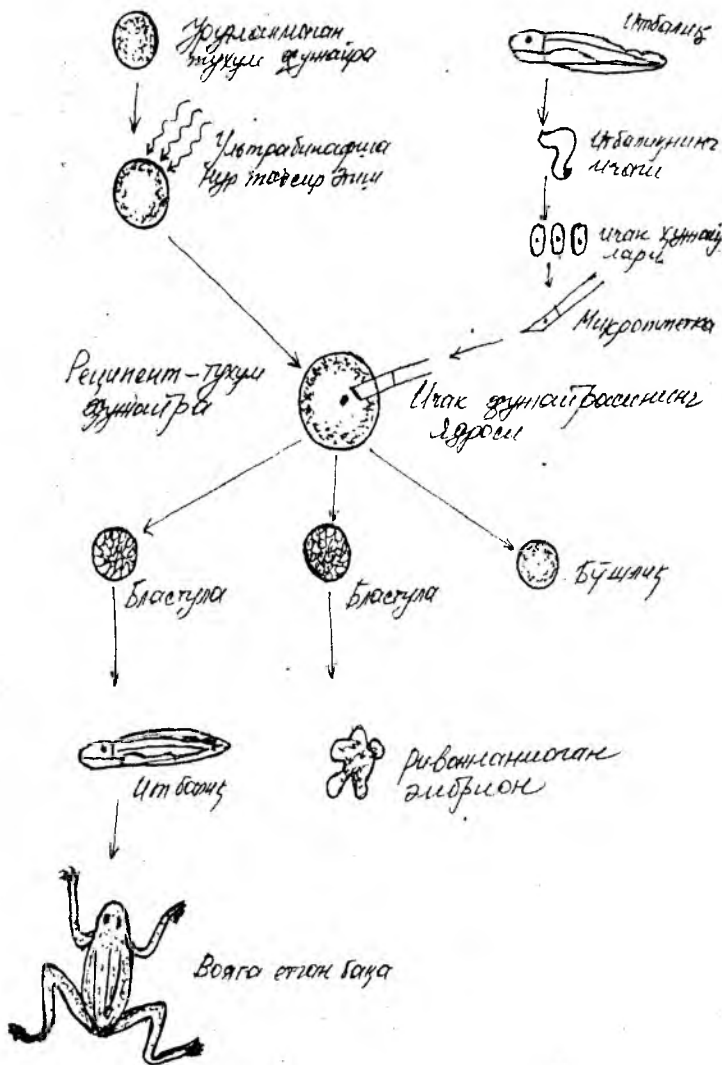 Уруғланмаган
тухум ҳужайра
Итбалиқ
Ультрабинафша
нур таъсир этиш
итбалиқнинг
ичаги
ичак ҳужай
лари
Микропипетка
Реципент-тухум
ҳужайра
Ичак ҳужайрасининг
ядроси
Бластула
Бластула
Бўшлиқ
Итбалиқ
Ривожланмаган
эмбрион
Вояга етган бақа